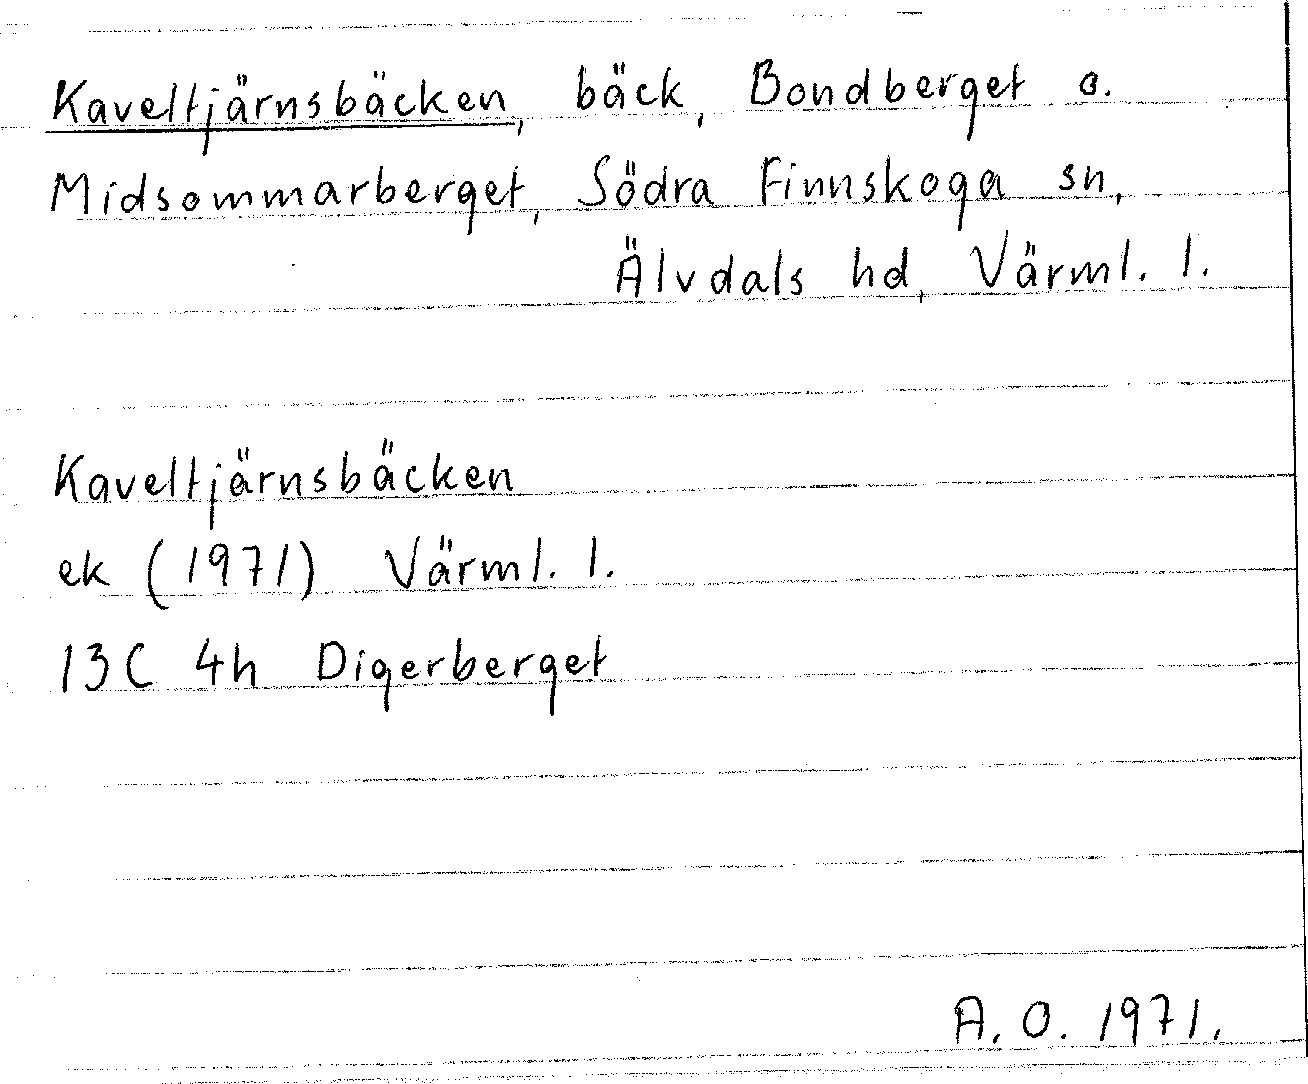 Kaveltjärnsbäcken, bäck, Bondberget o.
Midsommarberget, Södra Finnskoga sn,
Älvdals hd, Värml. l.
Kaveltjärnsbäcken
ek (1971) Värml. l.
13C 4h Digerberget
A. O. 1971.